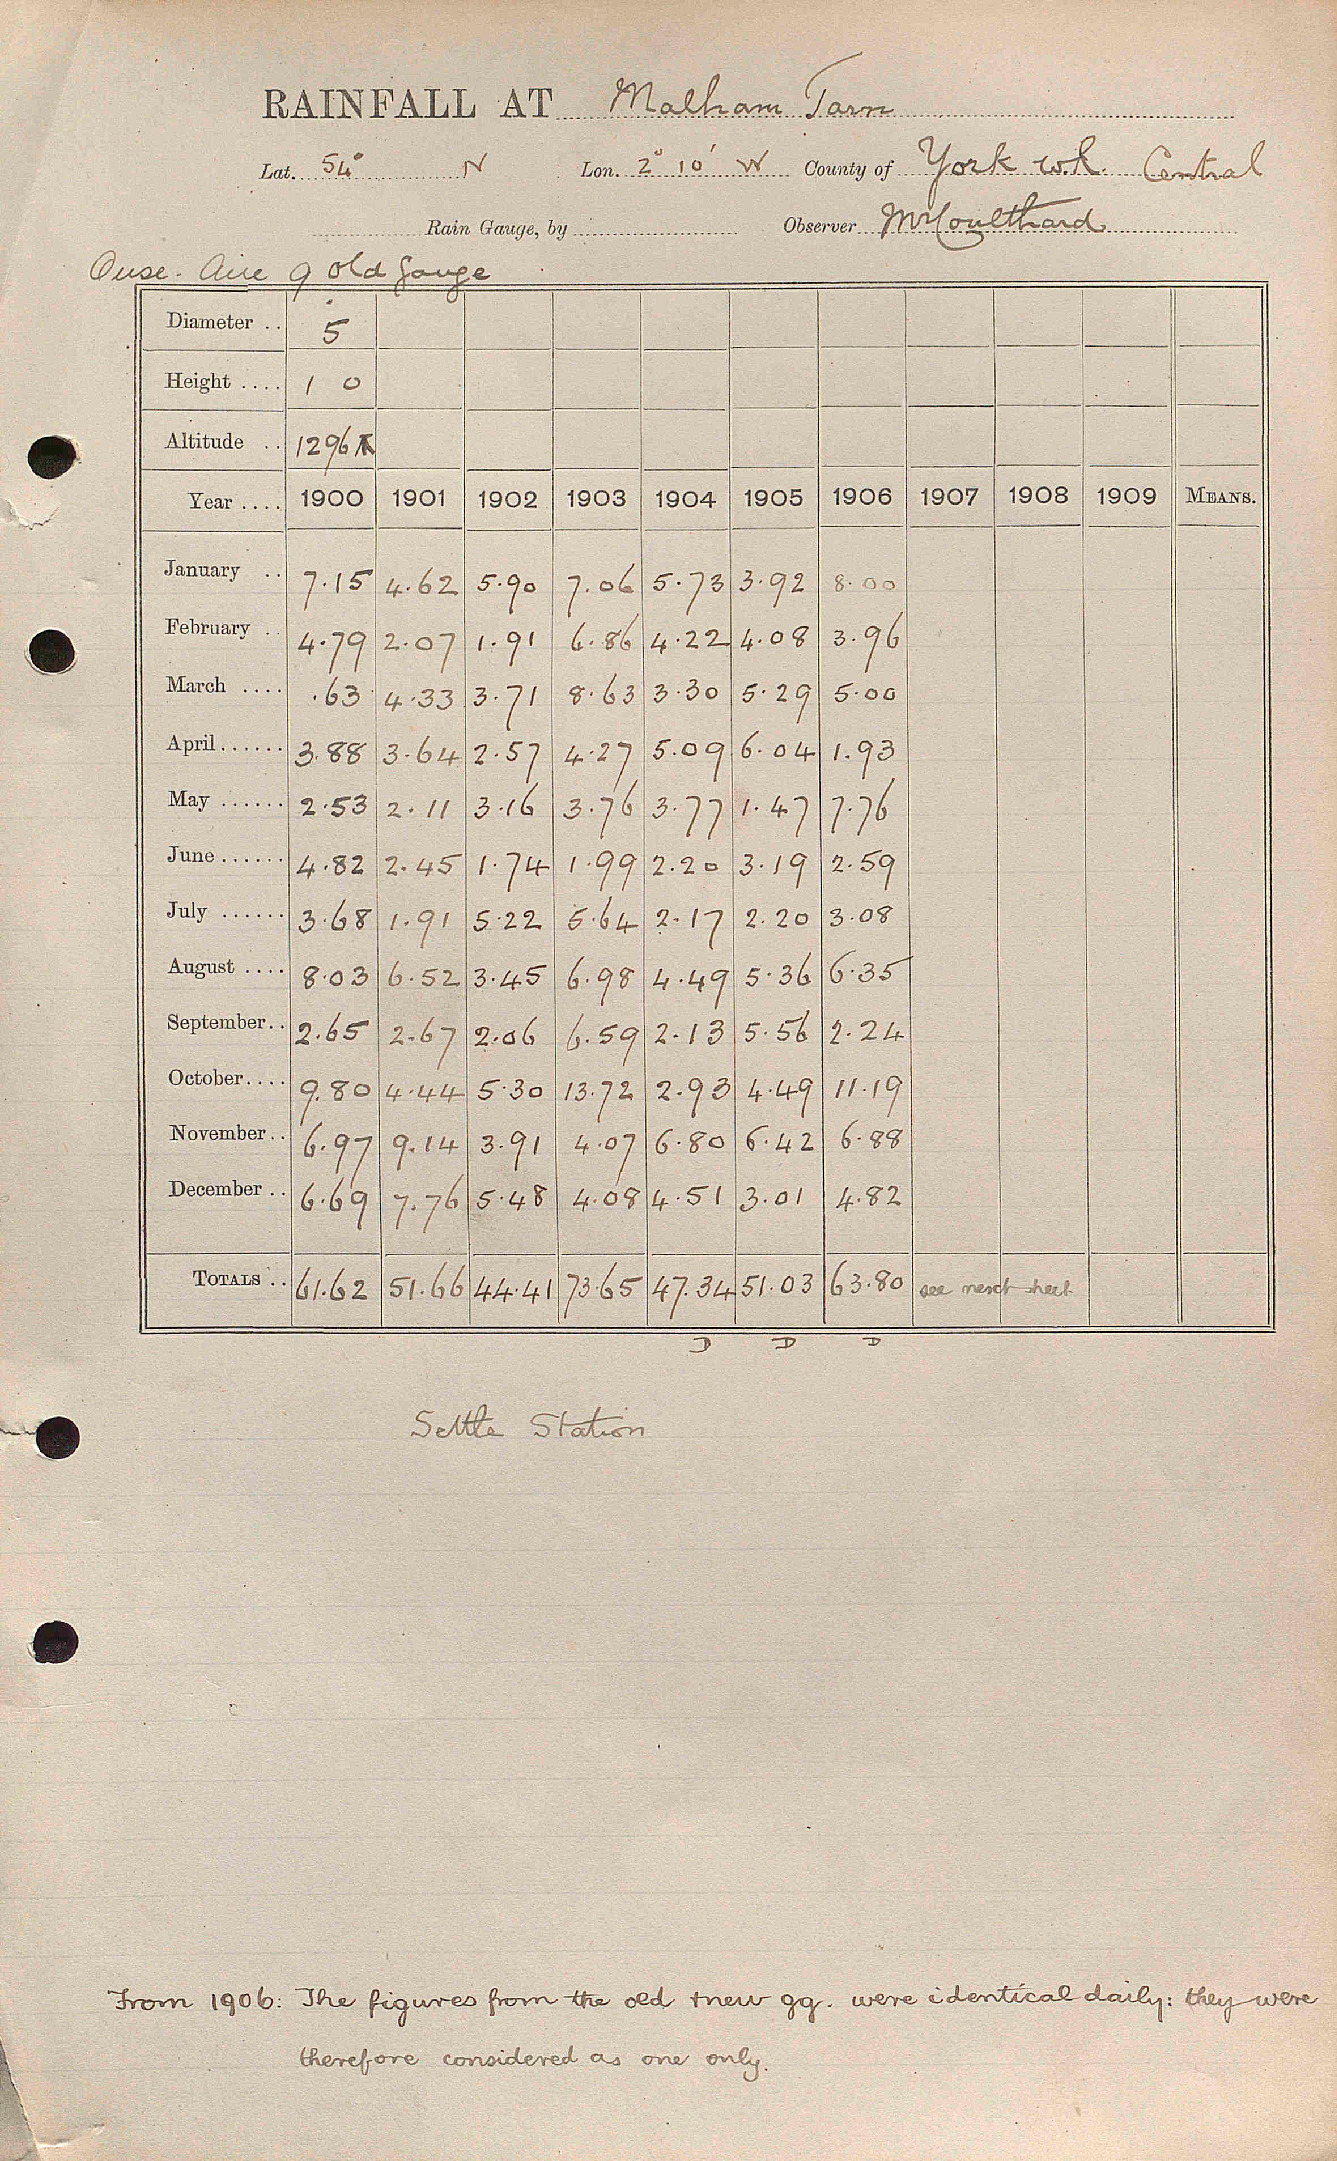 RAINFALL AT Malham Tarn
Lat. 54° N Lon. 2° 10' W County of York W.R. Central
Rain Gauge, by Observer Mr Coulthard
Ouse. Aire 9 Old Gauge
Diameter .. 5
Height .... 1 0
Altitude .. 1296
Year .... 1900 1901 1902 1903 1904 1905 1906 1907 1908 1909 MEANS.
January .. 7.15 4.62 5.90 7.06 5.73 3.92 8.00
February .. 4.79 2.07 1.91 6.86 4.22 4.08 3.96
March .... .63 4.33 3.71 8.63 3.30 5.29 5.00
April...... 3.88 3.64 2.57 4.27 5.09 6.04 1.93
May ...... 2.53 2.11 3.16 3.76 3.77 1.47 7.76
June ...... 4.82 2.45 1.74 1.99 2.20 3.19 2.59
July ...... 3.68 1.91 5.22 5.64 2.17 2.20 3.08
August .... 8.03 6.52 3.45 6.98 4.49 5.36 6.35
September.. 2.65 2.67 2.06 6.59 2.13 5.56 2.24
October.... 9.80 4.44 5.30 13.72 2.93 4.49 11.19
November.. 6.97 9.14 3.91 4.07 6.80 6.42 6.88
December .. 6.69 7.76 5.48 4.08 4.51 3.01 4.82
TOTALS .. 61.62 51.66 44.41 73.65 47.34 51.03 63.80 see next sheet
D D D
Settle Station
From 1906: The figures from the old + new gg. were identical daily: they were
therefore considered as one only.